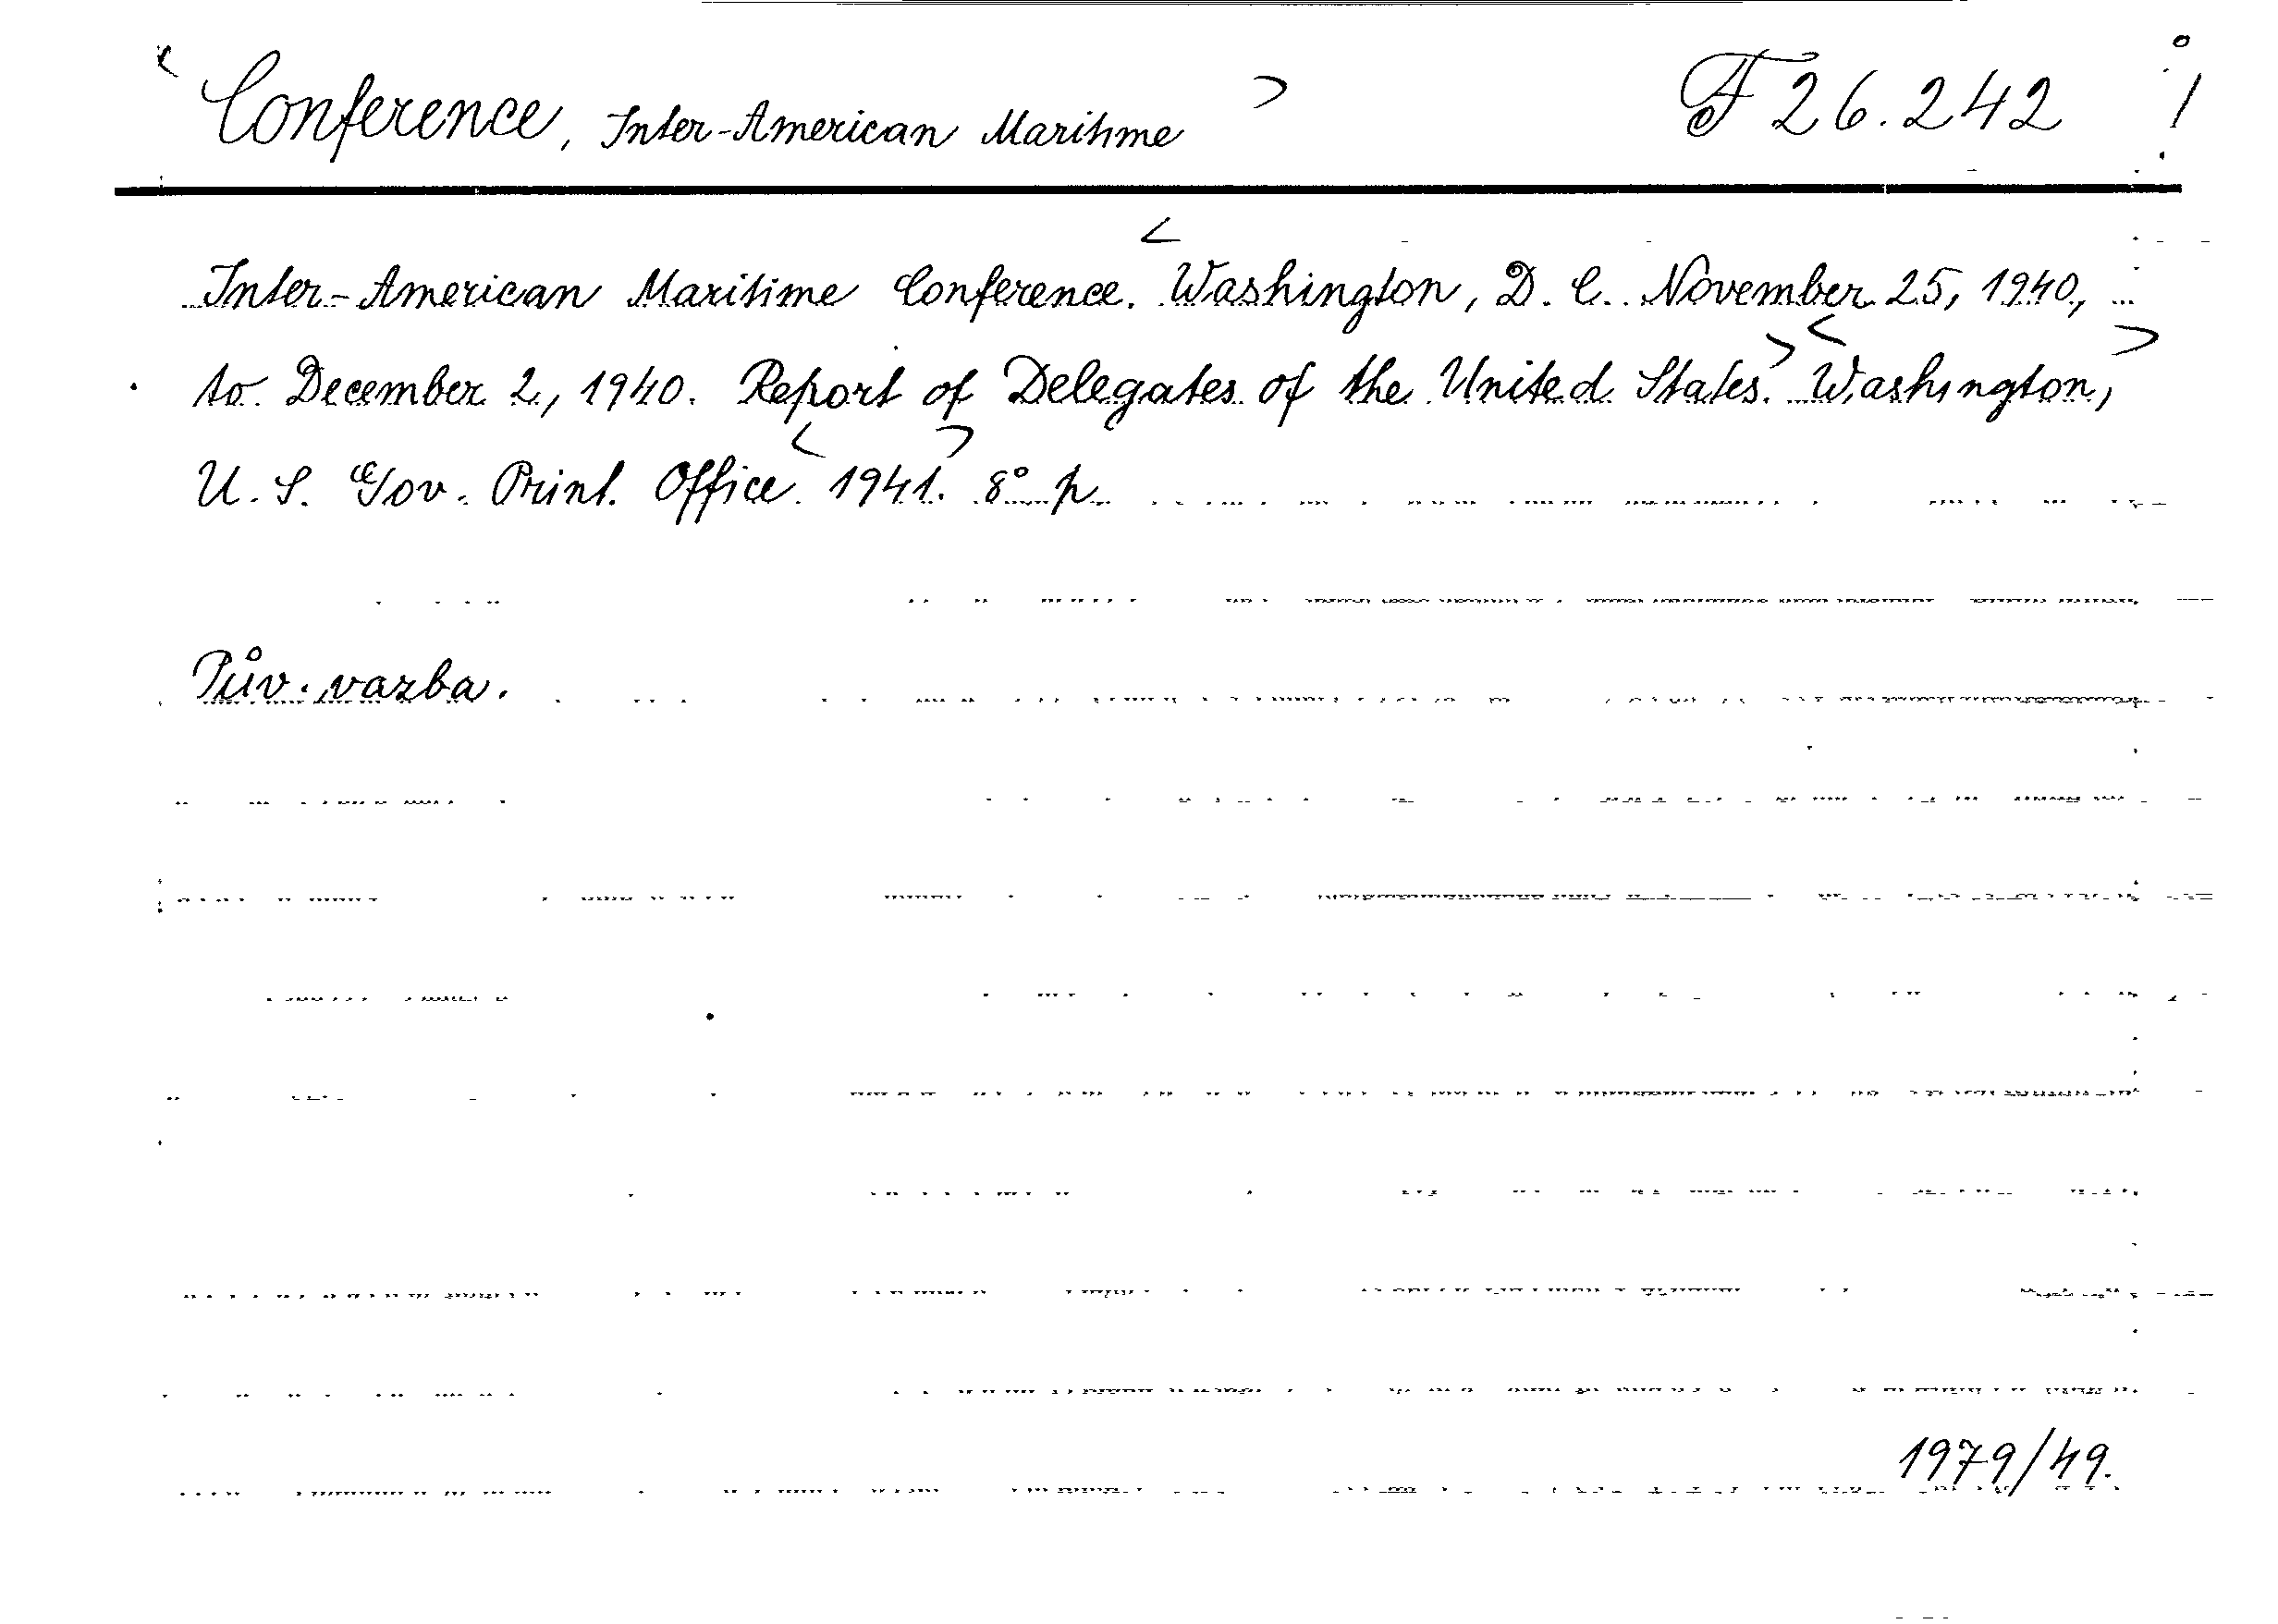 < Conference, Inter-American Maritime > F 26.242
Inter-American Maritime Conference. < Washington, D. C. November 25, 1940,
to December 2, 1940. Report of Delegates of the United States. > < Washington, >
U. S. Gov. Print. Office < 1941. > 8° p.
Pův. vazba.
1979/49.